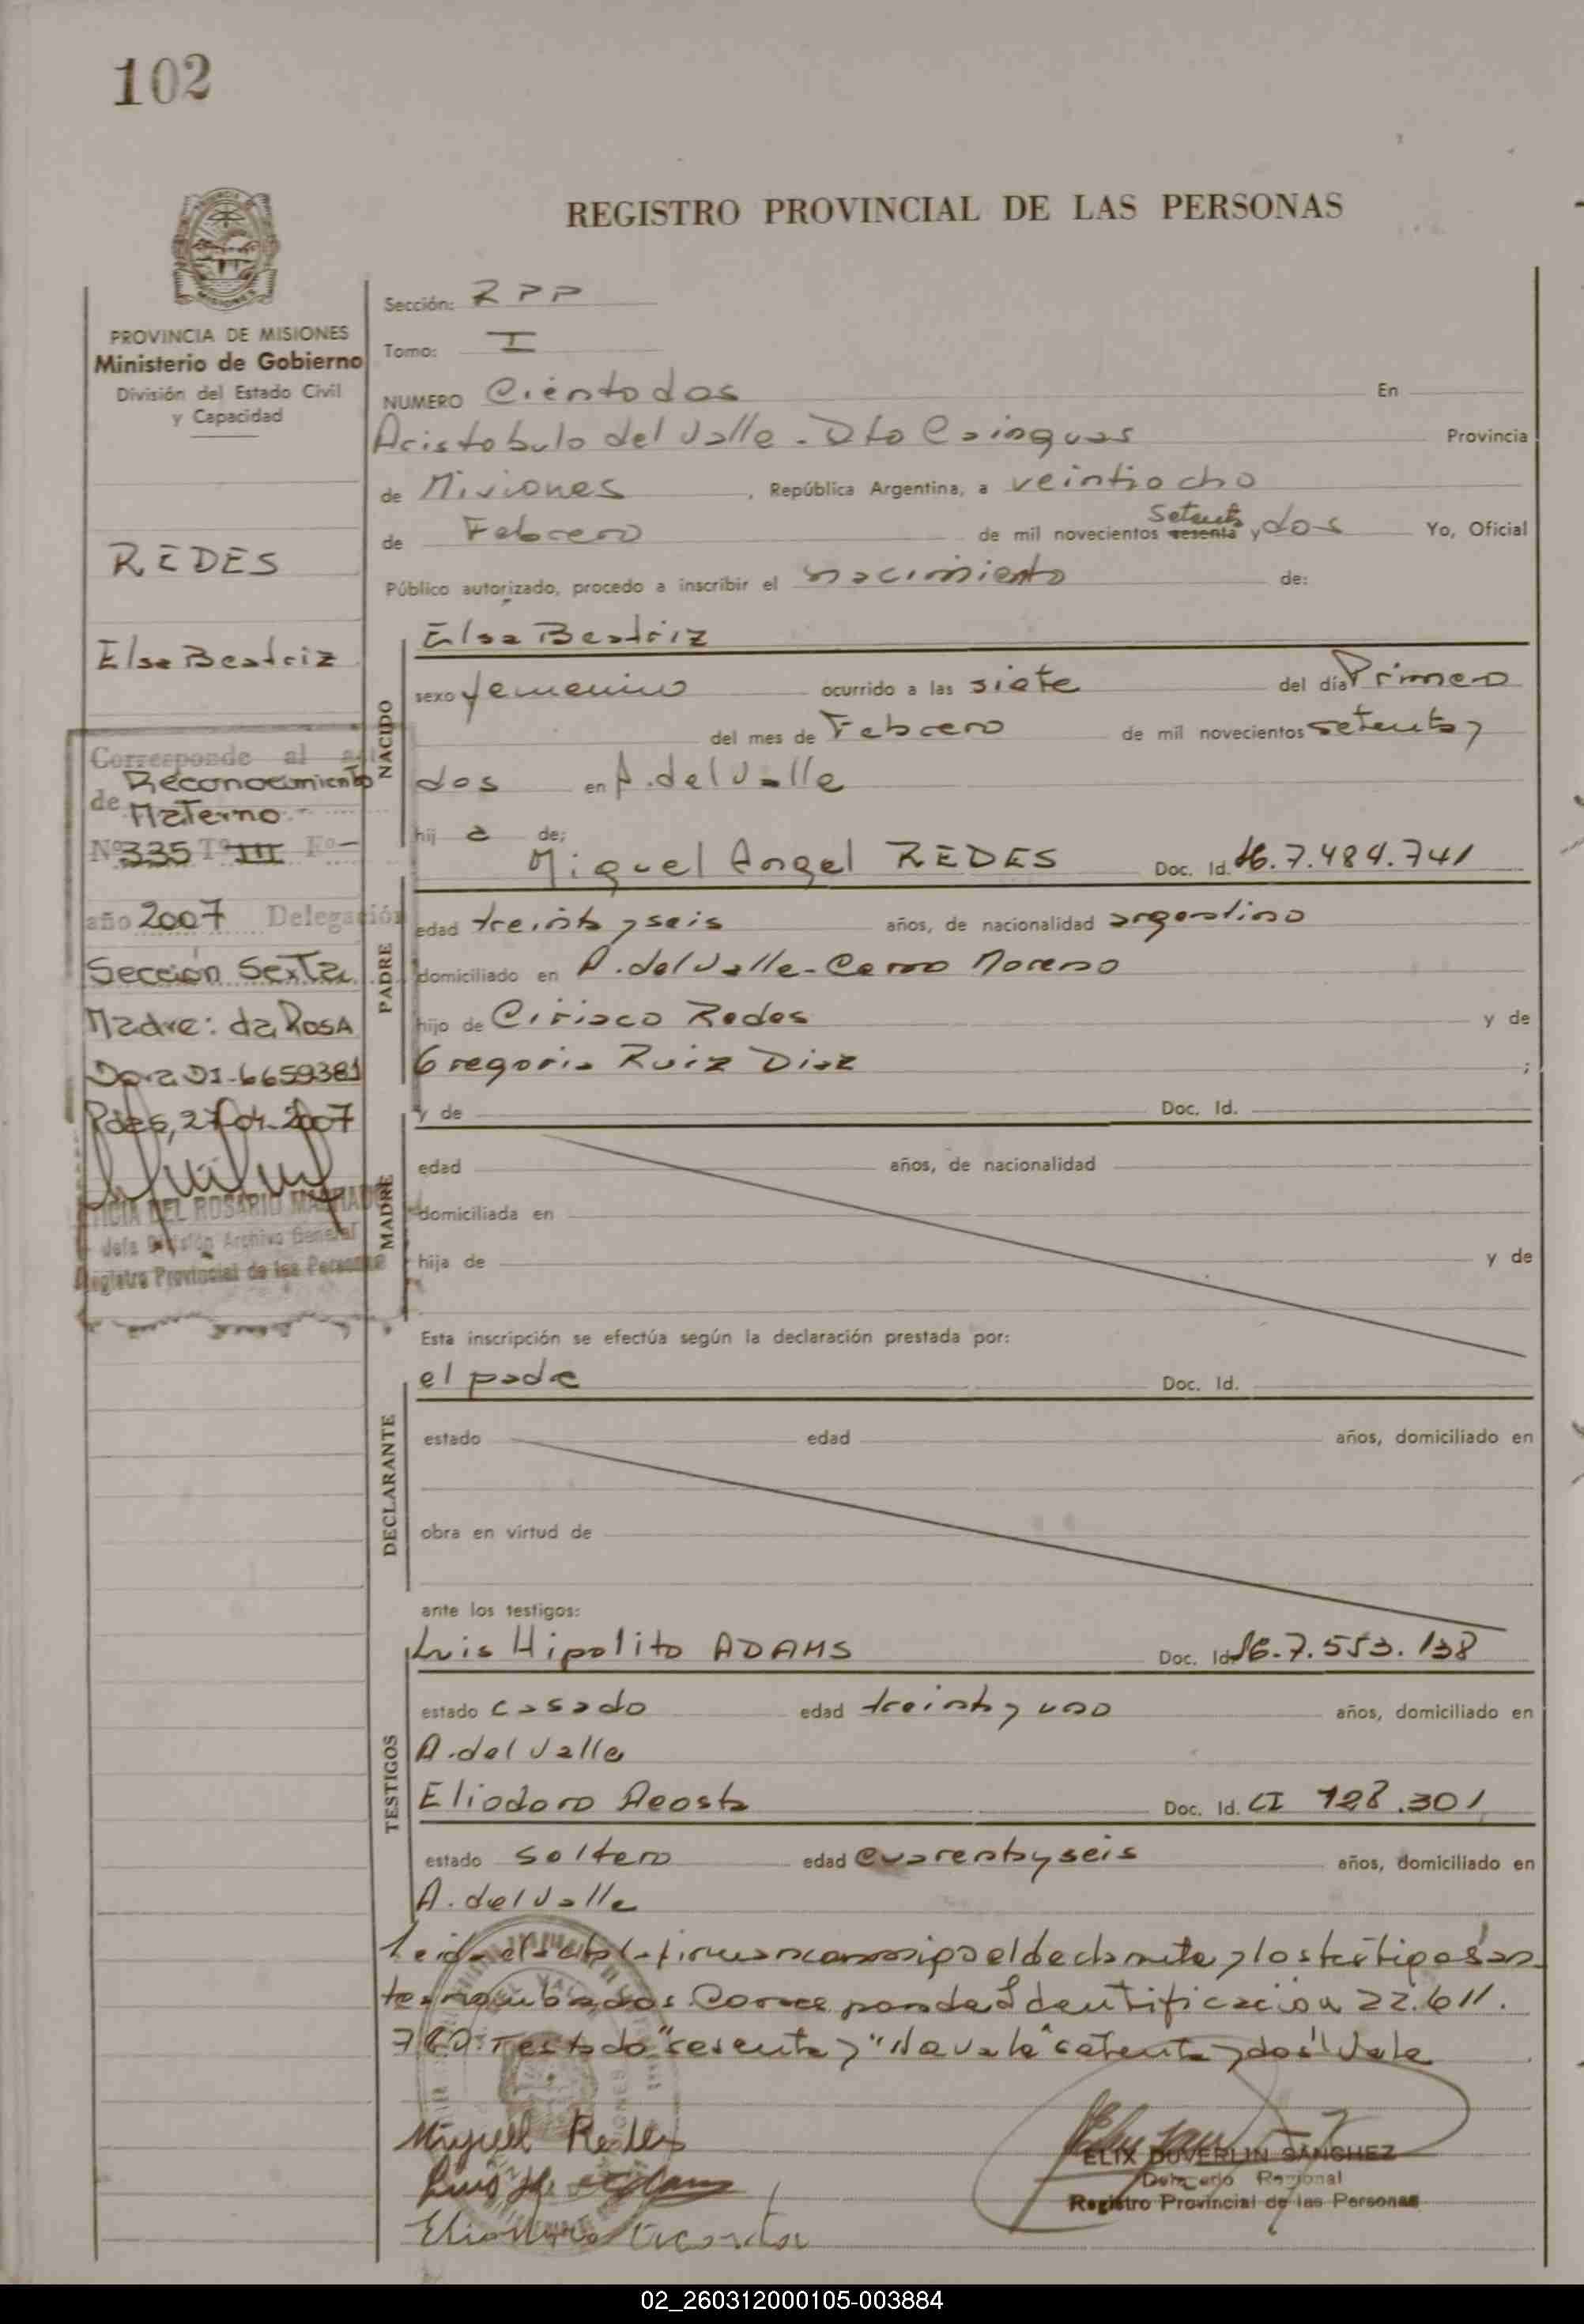 102
REGISTRO PROVINCIAL DE LAS PERSONAS
PROVINCIA DE MISIONES
Ministerio de Gobierno
División del Estado Civil
y Capacidad
REDES
Elsa Beatriz
Corresponde al
de Reconocimiento
Materno.-
Nº 335 Tº III Fº -
año 2007 Delegación
Sección Sexta
Madre: da Rosa
Dora DI-6659381
Pdas, 27-04-2007
DEL ROSARIO
Jefa División Archivo General
Registro Provincial de las Personas
Sección: RPP
Tomo: I
NUMERO Ciento dos En
Aristobulo del Valle - Dto Cainguas Provincia
de Misiones, República Argentina, a veintiocho
de Febrero de mil novecientos sesenta setenta y dos Yo, Oficial
Público autorizado, procedo a inscribir el nacimiento de:
NACIDO
Elsa Beatriz
sexo femenino ocurrido a las siete del día Primero
del mes de Febrero de mil novecientos setenta y
dos en A. del Valle
hij a de:
PADRE
Miguel Angel REDES Doc. Id. M. 7.484.741
edad treinta y seis años, de nacionalidad argentino
domiciliado en A. del Valle - Cerro Moreno
hijo de Ciriaco Redes y de
Gregoria Ruiz Diaz ;
MADRE
y de Doc. Id.
edad años, de nacionalidad
domiciliada en
hija de y de
Esta inscripción se efectúa según la declaración prestada por:
DECLARANTE
el padre Doc. Id.
estado edad años, domiciliado en
obra en virtud de
ante los testigos:
TESTIGOS
Luis Hipolito ADAMS Doc. Id. 7.553.138
estado casado edad treinta y uno años, domiciliado en
A. del Valle
Eliodoro Acosta Doc. Id. CI 128.301
estado soltero edad cuarenta y seis años, domiciliado en
A. del Valle
Leida el acta la firman conmigo el declarante y los testigos an
tes nombrados. Corresponde Identificación 22.611.
Testado "sesenta y" No vale "setenta y dos" Vale
Miguel Redes
Luis H. Adams
Eliodoro Acosta
ELIX DUVERLIN SANCHEZ
Delegado Regional
Registro Provincial de las Personas
02_260312000105-003884